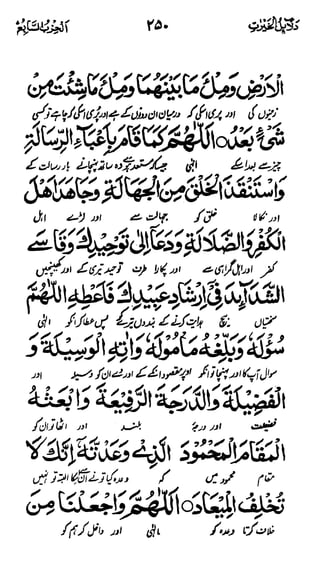 دلائل الخیرات ۲۵۰ الحزب السابع
الْاَرْضِ وَمِلْءَ مَا بَيْنَهُمَا وَمِلْءَ مَا شِئْتَ مِنْ
زمینوں کی اور پری اسکی کہ درمیان ان دونوں کے ہے اور پری اسکی کہ چاہے تو کسی
شَیْءٍ بَعْدُ ○ اَللّٰهُمَّ كَمَا قَامَ بِاَعْبَآءِ الرِّسَالَةِ
چیز سے بعد اسکے الٰہی جیسے کہ مستعد ہوے وہ ساتھ پہنچانے بار رسالت کے
وَاسْتَنْقَذَ الْخَلْقَ مِنَ الْجَهَالَةِ وَجَاهَدَ اَهْلَ
اور نکالا خلق کو جہالت سے اور لڑے اہل
الْكُفْرِ وَالضَّلَالَةِ وَدَعَا اِلٰى تَوْحِيْدِكَ وَقَاسَے
کفر اور اہل گمراہی سے اور پکارا طرف توحید تیری کے اور کھینچیں
الشَّدَآئِدَ فِیْ اِرْشَادِ عَبِيْدِكَ فَاَعْطِهِ اللّٰهُمَّ
سختیاں بیچ ہدایت کرنے کے بندوں تیرے کے پس عطا کر انکو الٰہی
سُؤْلَهٗ وَبَلِّغْهُ مَاْمُوْلَهٗ وَاٰتِهِ الْوَسِيْلَةَ وَ
سوال آپ کا اور پہنچا تو انکو اوپر مقصود انکے کے اور دے ان کو وسیلہ اور
الْفَضِيْلَةَ وَالدَّرَجَةَ الرَّفِيْعَةَ وَابْعَثْهُ
فضیلت اور درجۂ بلند اور اٹھا تو ان کو
الْمَقَامَ الْمَحْمُوْدَ الَّذِیْ وَعَدْتَّهٗ اِنَّكَ لَا
مقام محمود میں کہ وعدہ کیا تو نے ان سے البتہ تو نہیں
تُخْلِفُ الْمِيْعَادَ ○ اَللّٰهُمَّ وَاجْعَلْنَا مِنَ
خلاف کرتا وعدہ کو الٰہی اور داخل کر ہم کو